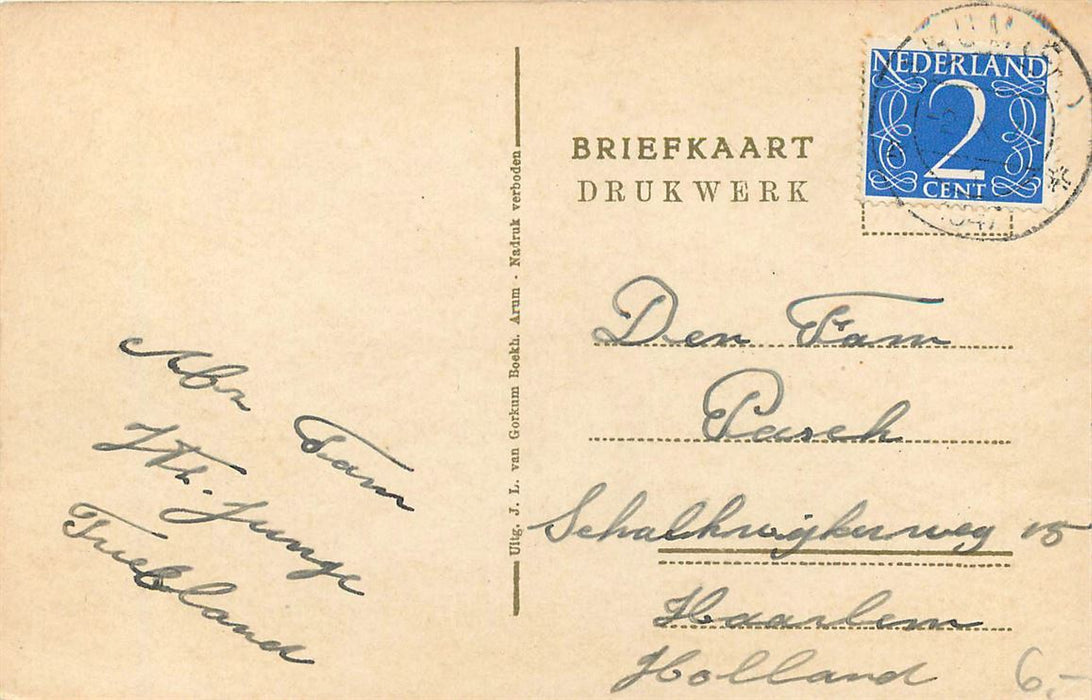 Afz Fam
Jth. Junge
Friesland
Uitg. J. L. van Gorkum Boekh. Arum - Nadruk verboden
BRIEFKAART
DRUKWERK
NEDERLAND
2
CENT
1947
Den Fam
Pasch
Schalkwijkerweg 15
Haarlem
Holland
6-